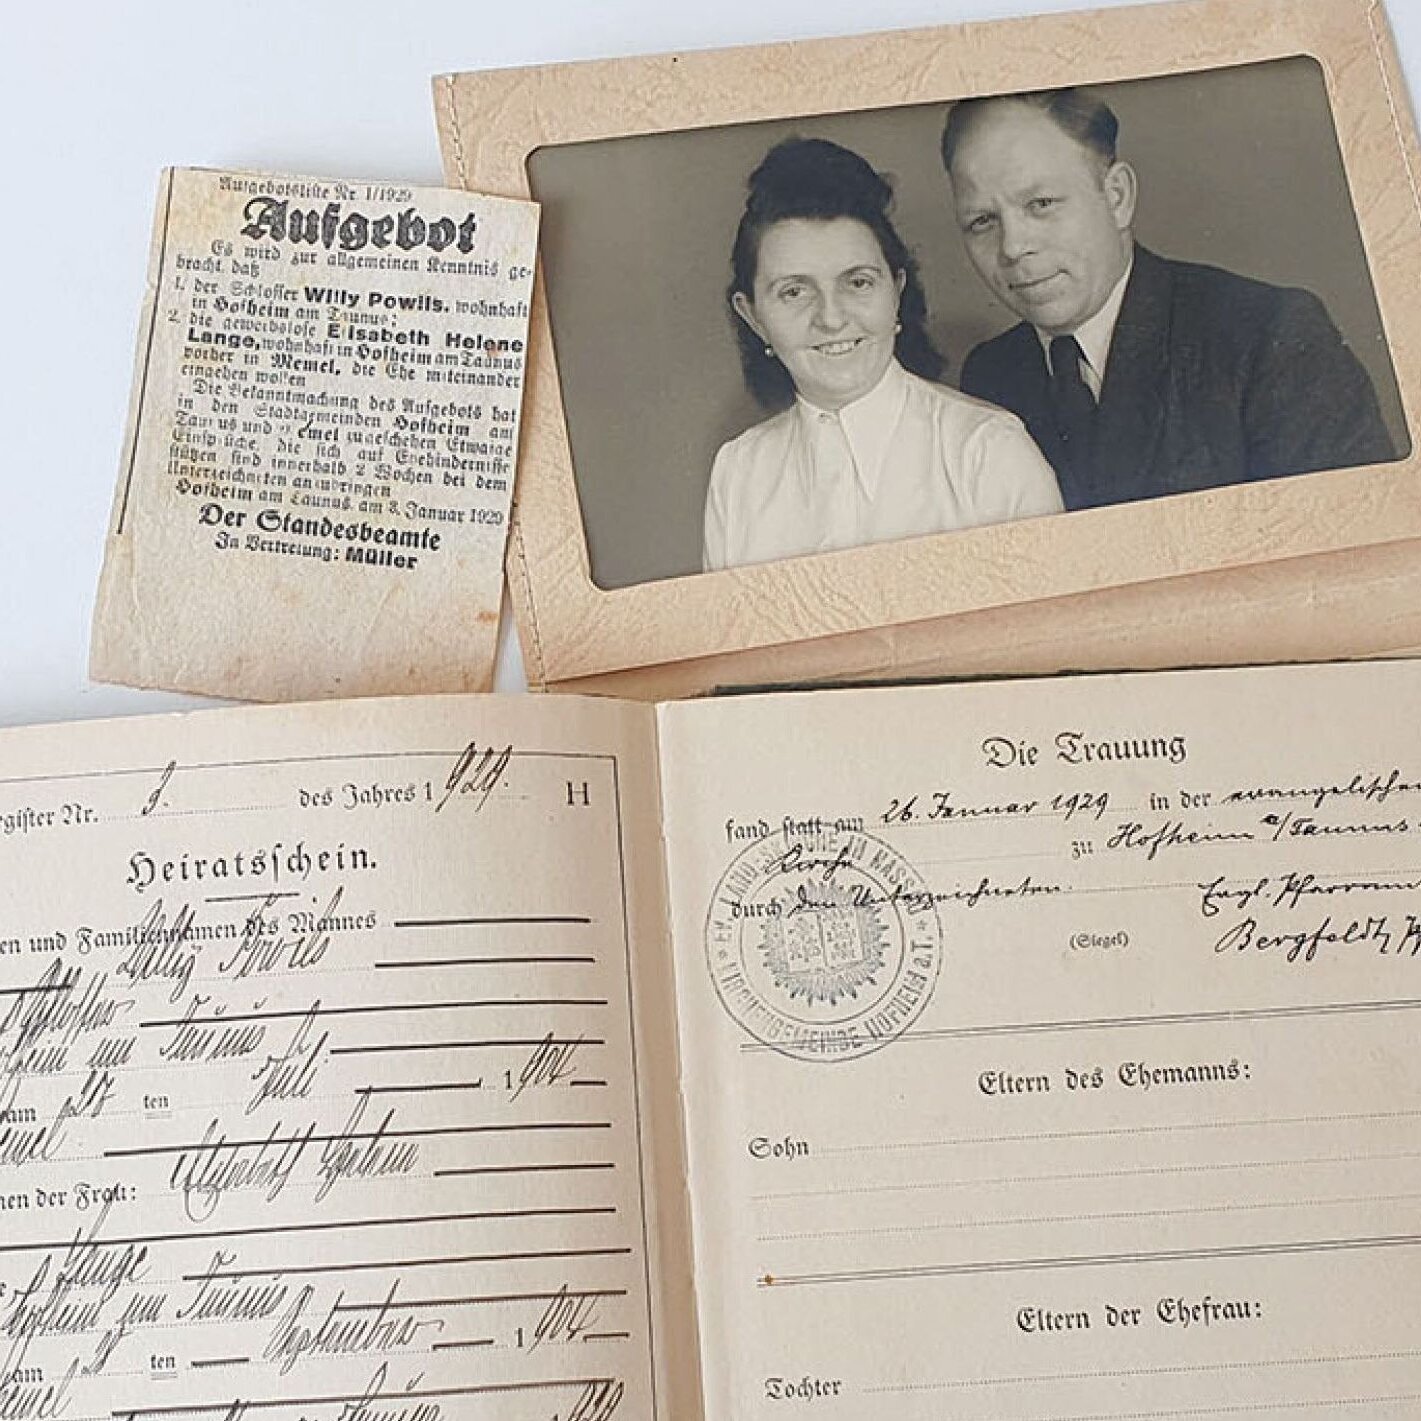 Aufgebotsliste Nr. 1/1929
Aufgebot
Es wird zur allgemeinen Kenntnis ge-
bracht, daß
1. der Schlosser Willy Powils, wohnhaft
in Hofheim am Taunus;
2. die gewerbslose Elisabeth Helene
Lange, wohnhaft in Hofheim am Taunus
vorher in Memel, die Ehe miteinander
eingehen wollen
Die Bekanntmachung des Aufgebots hat
in den Stadtgemeinden Hofheim am
Taunus und Memel zu geschehen Etwaige
Einsprüche, die sich auf Ehehindernisse
stützen sind innerhalb 2 Wochen bei dem
Unterzeichneten anzubringen
Hofheim am Taunus, am 3. Januar 1929
Der Standesbeamte
In Vertretung: Müller
gister Nr. 3. des Jahres 1929. H
Heiratsschein.
en und Familiennamen des Mannes
Willy Powils
Schlosser
am Taunus
am 27 ten Juli 1904
emel
en der Frau: Elisabeth Helene
Lange
Hofheim am Taunus
am ten September 1904
emel
Die Trauung
fand statt am 26. Januar 1929 in der evangelischen
Kirche zu Hofheim a/Taunus
durch den Unterzeichneten. Evgl. Pfarramt
(Siegel) Bergfeldt, Pf
EV. LANDESKIRCHE IN NASS
KIRCHENGEMEINDE HOFHEIM a.T.
Eltern des Ehemanns:
Sohn
Eltern der Ehefrau:
Tochter